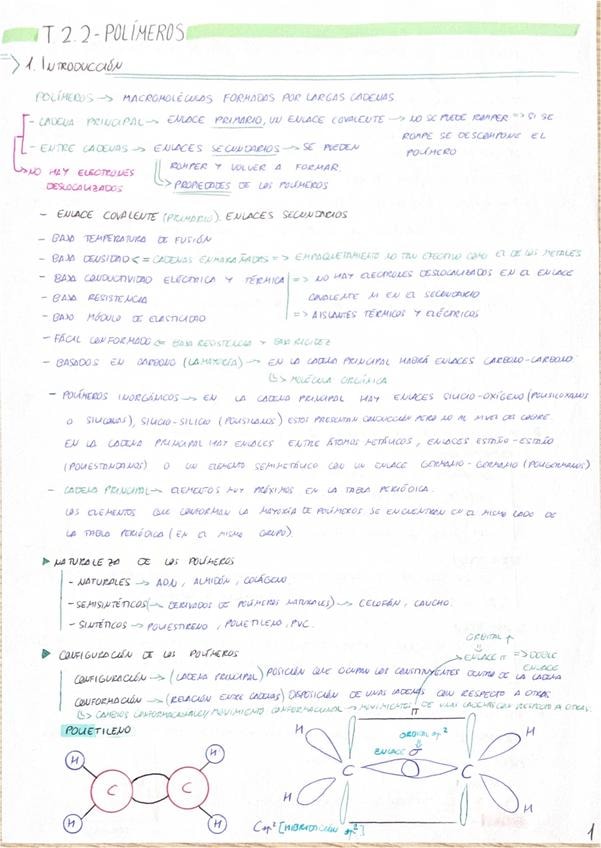 T 2.2-POLÍMEROS
=> 1. INTRODUCCIÓN
POLÍMEROS -> MACROMOLÉCULAS FORMADAS POR LARGAS CADENAS.
- CADENA PRINCIPAL -> ENLACE PRIMARIO, UN ENLACE COVALENTE -> NO SE PUEDE ROMPER => SI SE
ROMPE SE DESCOMPONE EL
POLÍMERO
- ENTRE CADENAS -> ENLACES SECUNDARIOS -> SE PUEDEN
ROMPER Y VOLVER A FORMAR.
PROPIEDADES DE LOS POLÍMEROS
NO HAY ELECTRONES
DESLOCALIZADOS
- ENLACE COVALENTE (PRIMARIO). ENLACES SECUNDARIOS
- BAJA TEMPERATURA DE FUSIÓN
- BAJA DENSIDAD <= CADENAS ENMARAÑADAS => EMPAQUETAMIENTO NO TAN EFECTIVO COMO EL DE LOS METALES
- BAJA CONDUCTIVIDAD ELÉCTRICA Y TÉRMICA => NO HAY ELECTRONES DESLOCALIZADOS EN EL ENLACE
- BAJA RESISTENCIA COVALENTE NI EN EL SECUNDARIO
- BAJO MÓDULO DE ELASTICIDAD => AISLANTES TÉRMICOS Y ELÉCTRICOS
- FÁCIL CONFORMADO <= BAJA RESISTENCIA Y BAJA RIGIDEZ
- BASADOS EN CARBONO (LA MAYORÍA) -> EN LA CADENA PRINCIPAL HABRÁ ENLACES CARBONO-CARBONO
MOLÉCULA ORGÁNICA
- POLÍMEROS INORGÁNICOS -> EN LA CADENA PRINCIPAL HAY ENLACES SILICIO-OXÍGENO (POLISILOXANOS
O SILICONAS), SILICIO-SILICIO (POLISILANOS) ESTOS PRESENTAN CONDUCCIÓN PERO NO AL NIVEL DEL COBRE.
EN LA CADENA PRINCIPAL HAY ENLACES ENTRE ÁTOMOS METÁLICOS, ENLACES ESTAÑO-ESTAÑO
(POLIESTANNANOS) O UN ELEMENTO SEMIMETÁLICO CON UN ENLACE GERMANIO-GERMANIO (POLIGERMANOS)
- CADENA PRINCIPAL -> ELEMENTOS MUY PRÓXIMOS EN LA TABLA PERIÓDICA.
LOS ELEMENTOS QUE CONFORMAN LA MAYORÍA DE POLÍMEROS SE ENCUENTRAN EN EL MISMO LADO DE
LA TABLA PERIÓDICA (EN EL MISMO GRUPO).
NATURALEZA DE LOS POLÍMEROS
- NATURALES -> ADN, ALMIDÓN, COLÁGENO
- SEMISINTÉTICOS (-> DERIVADOS DE POLÍMEROS NATURALES) -> CELOFÁN, CAUCHO.
- SINTÉTICOS -> POLIESTIRENO, POLIETILENO, PVC.
ORBITAL p
CONFIGURACIÓN DE LOS POLÍMEROS ENLACE π => DOBLE
ENLACE
CONFIGURACIÓN -> (CADENA PRINCIPAL) POSICIÓN QUE OCUPAN LOS CONSTITUYENTES DENTRO DE LA CADENA
CONFORMACIÓN -> (RELACIÓN ENTRE CADENAS) DISPOSICIÓN DE UNAS CADENAS CON RESPECTO A OTRAS.
CAMBIOS CONFORMACIONALES/MOVIMIENTO CONFORMACIONAL -> MOVIMIENTOS DE UNAS CADENAS CON RESPECTO A OTRAS.
POLIETILENO
π
ORBITAL sp²
ENLACE σ
H H
C C
H H
H H
C C
H H
C sp² [HIBRIDACIÓN sp²]
1